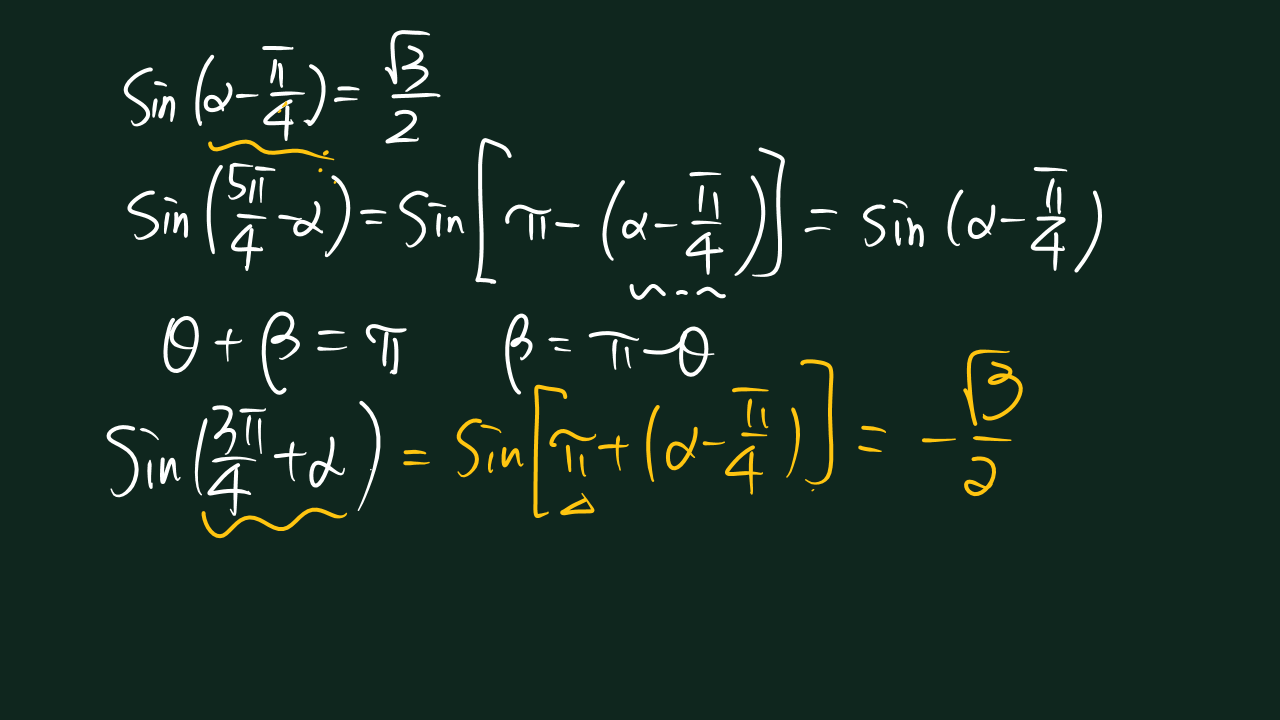 sin(α-π/4)=√3/2
sin(5π/4-α)=sin[π-(α-π/4)]=sin(α-π/4)
θ+β=π β=π-θ
sin(3π/4+α)=sin[π+(α-π/4)]=-√3/2